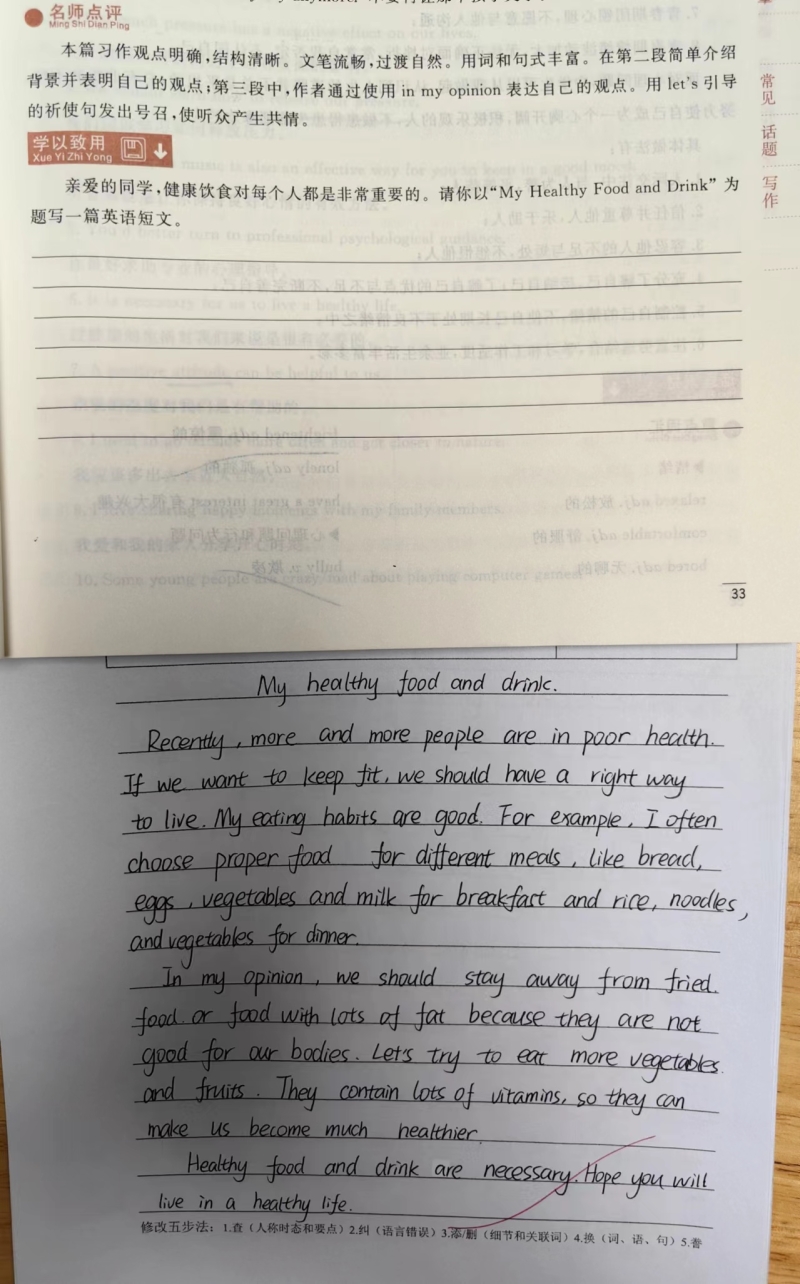 名师点评
Ming Shi Dian Ping
本篇习作观点明确,结构清晰。文笔流畅,过渡自然。用词和句式丰富。在第二段简单介绍
背景并表明自己的观点;第三段中,作者通过使用 in my opinion 表达自己的观点。用 let's 引导
的祈使句发出号召,使听众产生共情。
学以致用
Xue Yi Zhi Yong
亲爱的同学,健康饮食对每个人都是非常重要的。请你以“My Healthy Food and Drink”为
题写一篇英语短文。
常见
话题
写作
33
My healthy food and drink.
Recently, more and more people are in poor health.
If we want to keep fit, we should have a right way
to live. My eating habits are good. For example, I often
choose proper food for different meals, like bread,
eggs, vegetables and milk for breakfast and rice, noodles,
and vegetables for dinner.
In my opinion, we should stay away from fried.
food or food with lots of fat because they are not
good for our bodies. Let's try to eat more vegetables
and fruits. They contain lots of vitamins, so they can
make us become much healthier.
Healthy food and drink are necessary. Hope you will
live in a healthy life.
修改五步法:1.查(人称时态和要点)2.纠(语言错误)3.添/删(细节和关联词)4.换(词、语、句)5.誊